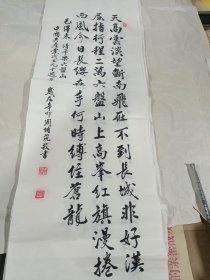 天高雲淡望斷南飛雁不到長城非好漢
屈指行程二萬六盤山上高峰紅旗漫捲
西風今日長纓在手何時縛住蒼龍
毛澤東 清平樂六盤山
中國共產黨成立九十週年
歲在辛卯周敬書